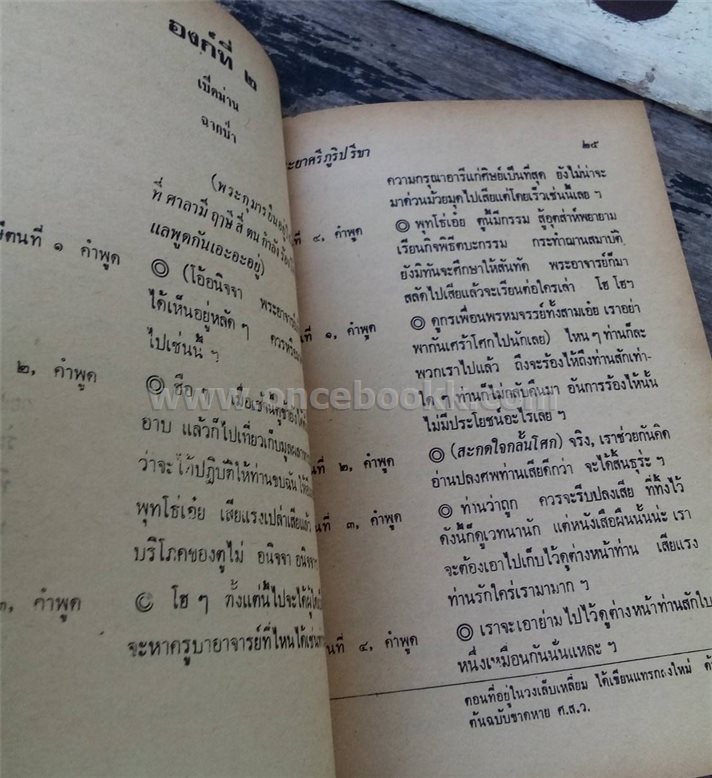 องก์ที่ ๒
เปิดม่าน
ฉากป่า
(พระกุมารยืนอยู่
ที่ ศาลามี ฤๅษี สี่ ตน กำลัง
แลพูดกันเอะอะอยู่)
ตนที่ ๑ คำพูด
◎ (โอ้อนิจจา พระอาจารย์
ได้เห็นอยู่หลัดๆ ควร
ไปเช่นนี้ ฯ
๒, คำพูด
◎ ฮือ ๆ เมื่อเช้านี้
อาบ แล้วก็ไปเที่ยวเก็บ
ว่าจะได้ปฏิบัติให้ท่านขบฉัน
พุทโธ่เอ๋ย เสียแรงเปล่าเสียแล้ว
บริโภคของตูไม่ อนิจจา อนิจจา ฯ
๓, คำพูด
◎ โฮ ๆ ตั้งแต่นี้ไปจะได้ผู้ใด
จะหาครูบาอาจารย์ที่ไหนได้เช่น
ะยาศรีภูริปรีชา
๒๕
ความกรุณาอารีแก่ศิษย์เป็นที่สุด ยังไม่น่าจะ
มาด่วนม้วยมุดไปเสียแต่โดยเร็วเช่นนี้เลย ฯ
ที่ ๔, คำพูด
◎ พุทโธ่เอ๋ย ตูนี้มีกรรม สู้อุตส่าห์พยายาม
เรียนกิจพิธีตบะกรรม กระทำฌานสมาบัติ
ยังมิทันจะศึกษาให้สันทัด พระอาจารย์ก็มา
สลัดไปเสียแล้วจะเรียนต่อใครเล่า โฮ โฮฯ
นที่ ๑, คำพูด
◎ ดูกรเพื่อนพรหมจรรย์ทั้งสามเอ๋ย เราอย่า
พากันเศร้าโศกไปนักเลย) ไหน ๆ ท่านก็ละ
พวกเราไปแล้ว ถึงจะร้องไห้ถึงท่านสักเท่า-
ใด ๆ ท่านก็ไม่กลับคืนมา อันการร้องไห้นั้น
ไม่มีประโยชน์อะไรเลย ฯ
www.oncebookk.com
นที่ ๒, คำพูด
◎ (สะกดใจกลั้นโศก) จริง, เราช่วยกันคิด
อ่านปลงศพท่านเสียดีกว่า จะได้สิ้นธุระ ฯ
นที่ ๓, คำพูด
◎ ท่านว่าถูก ควรจะรีบปลงเสีย ที่ทิ้งไว้
ดังนี้ก็ดูเวทนานัก แต่หนังเสือผืนนั้นน่ะ เรา
จะต้องเอาไปเก็บไว้ดูต่างหน้าท่าน เสียแรง
ท่านรักใคร่เรามามาก ฯ
นที่ ๔, คำพูด
◎ เราจะเอาย่ามไปไว้ดูต่างหน้าท่านสักใบ
หนึ่งเหมือนกันนั่นแหละ ฯ
ตอนที่อยู่ในวงเล็บเหลี่ยม ได้เขียนแทรกลงใหม่
ต้นฉบับขาดหาย ศ.ส.ว.